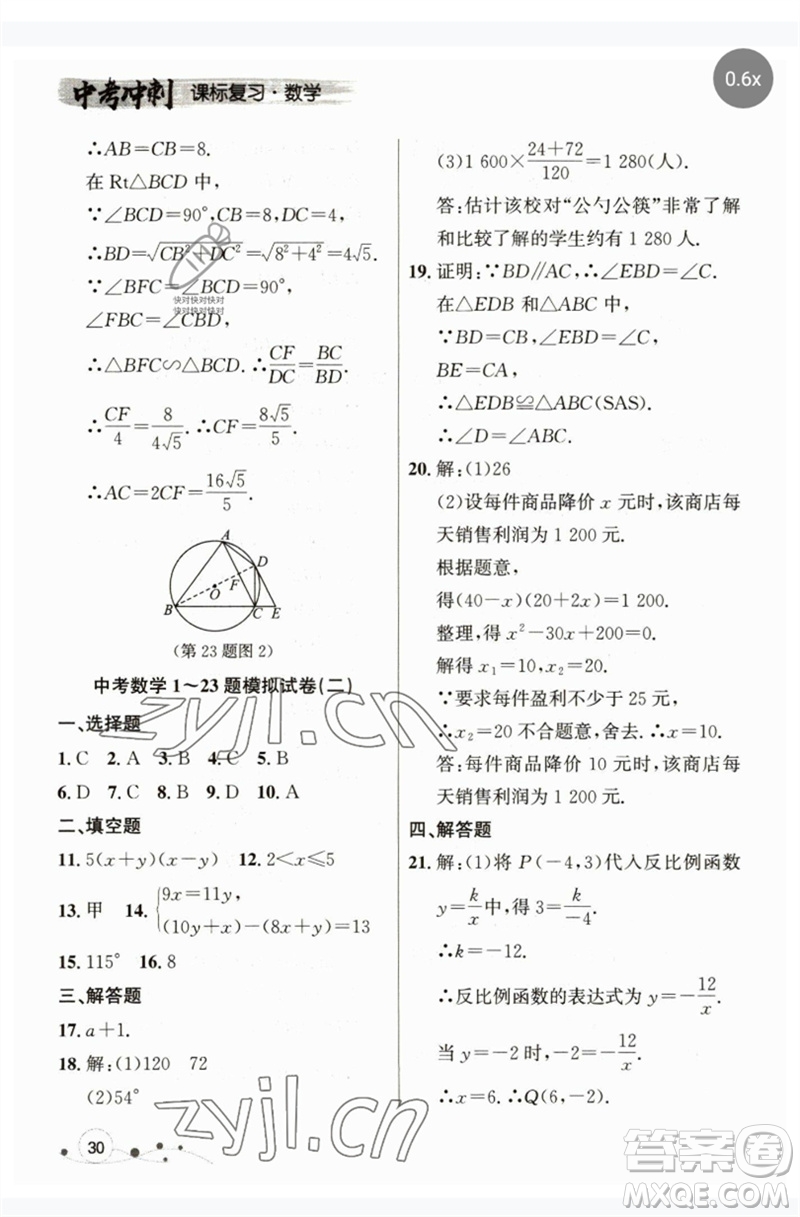 0.6x
中考冲刺 课标复习·数学
∴AB=CB=8.
在 Rt△BCD 中,
∵∠BCD=90°,CB=8,DC=4,
∴BD=√(CB²+DC²)=√(8²+4²)=4√5.
∵∠BFC=∠BCD=90°,
∠FBC=∠CBD,
快对快对快对
快对快对快对
∴△BFC∽△BCD. ∴CF/DC=BC/BD.
∴CF/4=8/(4√5). ∴CF=8√5/5.
∴AC=2CF=16√5/5.
A
D
F
O
B
C
E
(第 23 题图 2)
中考数学 1~23 题模拟试卷(二)
一、选择题
1. C 2. A 3. B 4. C 5. B
6. D 7. D 8. B 9. D 10. A
二、填空题
11. 5(x+y)(x-y) 12. 2<x≤5
13. 甲 14. {9x=11y,
(10y+x)-(8x+y)=13
15. 115° 16. 8
三、解答题
17. a+1.
18. 解:(1)120 72
(2)54°
30
(3)1 600×(24+72)/120=1 280(人).
答:估计该校对“公勺公筷”非常了解
和比较了解的学生约有 1 280 人.
19. 证明:∵BD∥AC,∴∠EBD=∠C.
在△EDB 和△ABC 中,
∵BD=CB,∠EBD=∠C,
BE=CA,
∴△EDB≌△ABC(SAS).
∴∠D=∠ABC.
20. 解:(1)26
(2)设每件商品降价 x 元时,该商店每
天销售利润为 1 200 元.
根据题意,
得(40-x)(20+2x)=1 200.
整理,得 x²-30x+200=0.
解得 x₁=10,x₂=20.
∵要求每件盈利不少于 25 元,
∴x₂=20 不合题意,舍去.∴x=10.
答:每件商品降价 10 元时,该商店每
天销售利润为 1 200 元.
四、解答题
21. 解:(1)将 P(-4,3)代入反比例函数
y=k/x 中,得 3=k/-4.
∴k=-12.
∴反比例函数的表达式为 y=-12/x.
当 y=-2 时,-2=-12/x.
∴x=6. ∴Q(6,-2).
zyjl.cn
zyjl.cn
答案圈
MXQE.COM